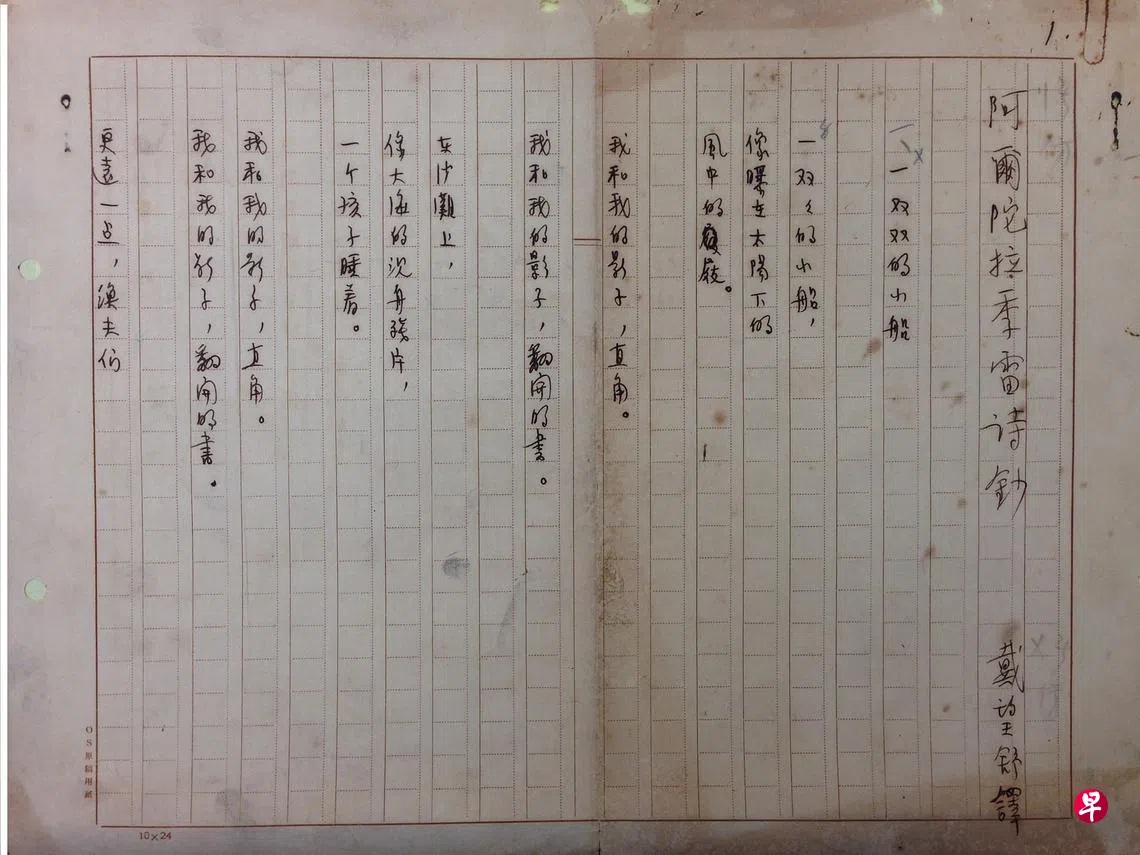 1.
阿爾陀拉季雷诗鈔 戴望舒譯
一双双的小船
一双々的小船，
像曝在太陽下的
風中的履屐。
我和我的影子，直角。
我和我的影子，翻開的書。
在沙灘上，
像大海的沉舟残片，
一个孩子睡着。
我和我的影子，直角。
我和我的影子，翻開的書。
更遠一点，漁夫们
OS原稿用紙
10×24
早